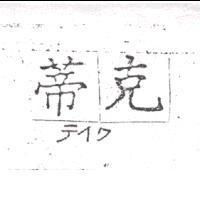 蒂克
テイク